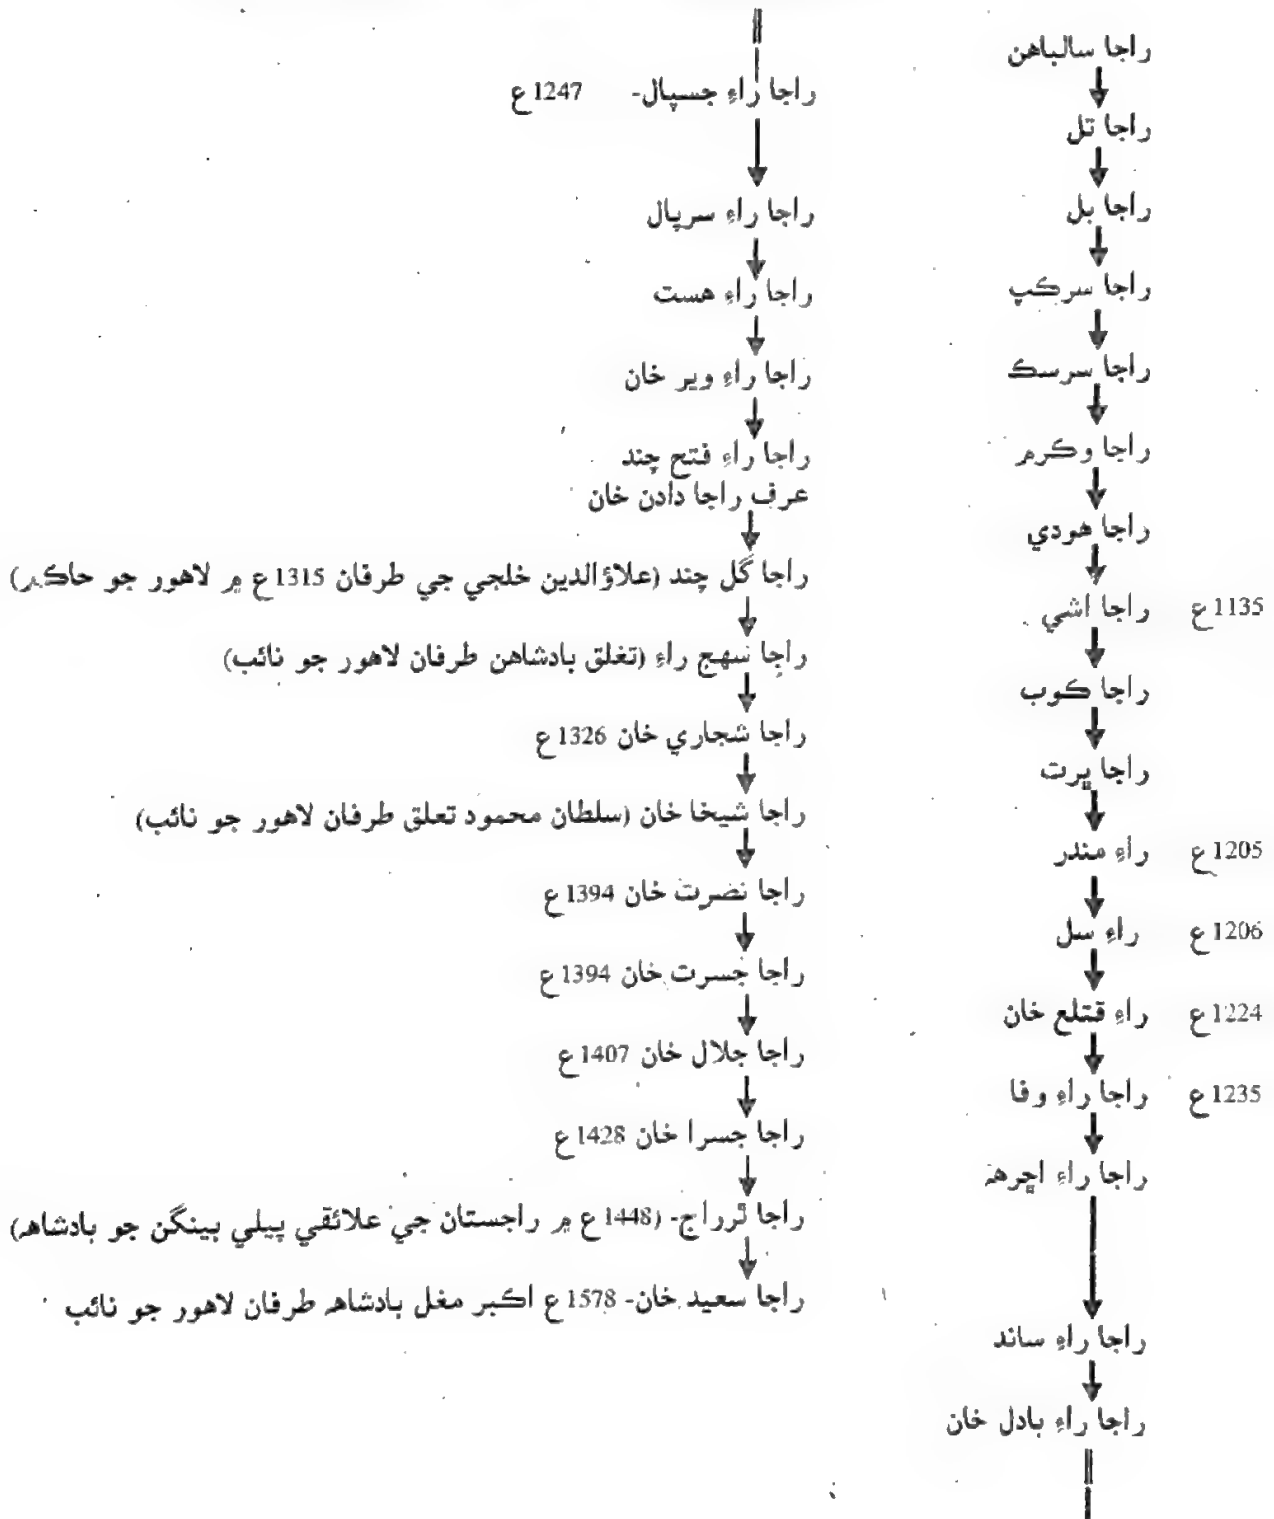 راجا سالباهن
راجا تل
راجا بل
راجا سرڪپ
راجا سرسڪ
راجا وڪرم
راجا هودي
راجا اشي 1135ع
راجا ڪوب
راجا پرت
راءِ مندر 1205ع
راءِ سل 1206ع
راءِ قتلع خان 1224ع
راجا راءِ وفا 1235ع
راجا راءِ اڇرهه
راجا راءِ ساند
راجا راءِ بادل خان
راجا راءِ جسپال- 1247ع
راجا راءِ سرپال
راجا راءِ هست
راجا راءِ وير خان
راجا راءِ فتح چند
عرف راجا دادن خان
راجا گل چند (علاؤالدين خلجي جي طرفان 1315ع ۾ لاهور جو حاڪم)
راجا سهج راءِ (تغلق بادشاهن طرفان لاهور جو نائب)
راجا شجاري خان 1326ع
راجا شيخا خان (سلطان محمود تعلق طرفان لاهور جو نائب)
راجا نصرت خان 1394ع
راجا جسرت خان 1394ع
راجا جلال خان 1407ع
راجا جسرا خان 1428ع
راجا ٿرراج- (1448ع ۾ راجستان جي علائقي پيلي بينگن جو بادشاهه)
راجا سعيد خان- 1578ع اڪبر مغل بادشاهه طرفان لاهور جو نائب